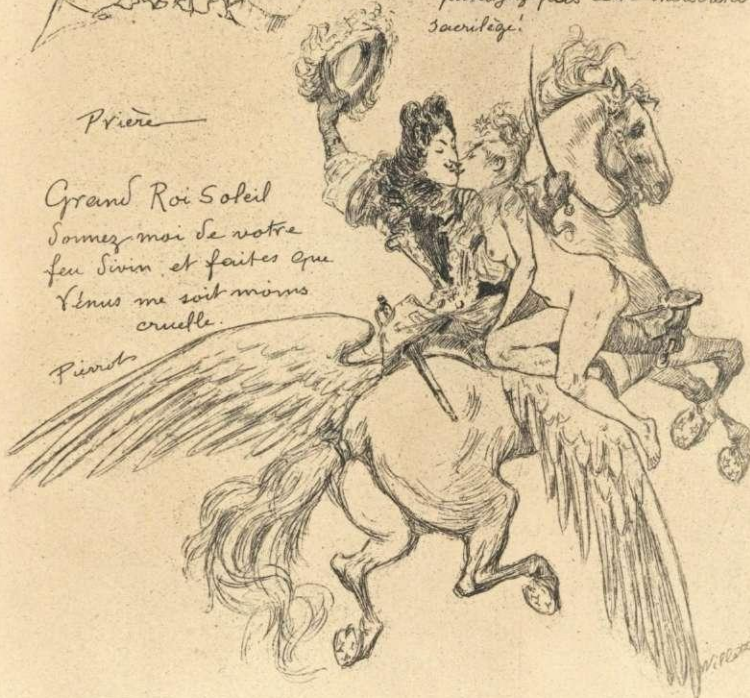 sacrilège!
Prière
Grand Roi Soleil
donnez moi de votre
feu divin et faites que
Vénus me soit moins
cruelle.
Pierrot
Willette